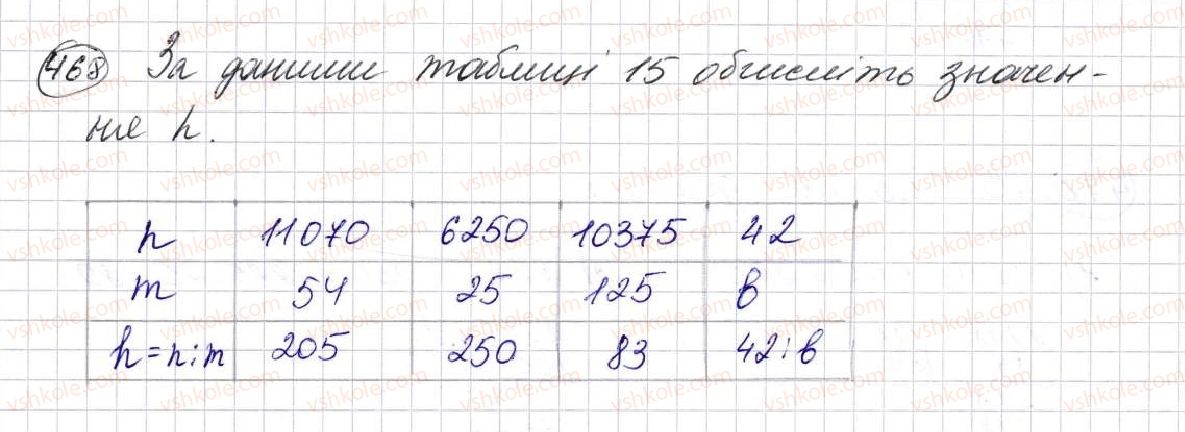 468 За даними таблиці 15 обчисліть значен-
ня h.
n 11070 6250 10375 42
m 54 25 125 в
h=n:m 205 250 83 42:в